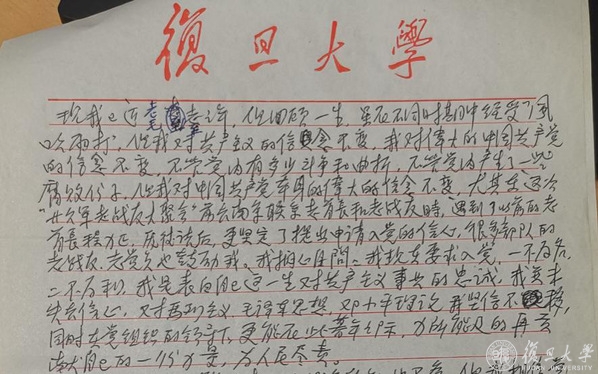 復旦大學
现我已近耄耋之年，但回顾一生，虽在不同时期中经受了风
吹雨打，但我对共产主义的信念不变，我对伟大的中国共产党
的信念不变，不管党内有多少斗争和曲折，不管党内产生了一些
腐败份子，但我对中国共产党英明的伟大的信念不变，尤其在这次
老战友大聚会"再去南京 老首长和老战友时，遇到了以前的老
首长程 正，历 谈后，更坚定了提出申请入党的信心，很多部队的
老战友、老党员也鼓励我。我扪心自问：我现在要求入党，一不为名，
二不为利，我是表明自己这一生对共产主义事业的忠诚，我并未
失去信心，对马列主义、毛泽东思想、邓小平理论 坚信不移，
同时在党组织的领导下，更能在此暮年之际，力所能及的再贡
献自己的一份力量，为人民尽责。
復旦大學
FUDAN UNIVERSITY